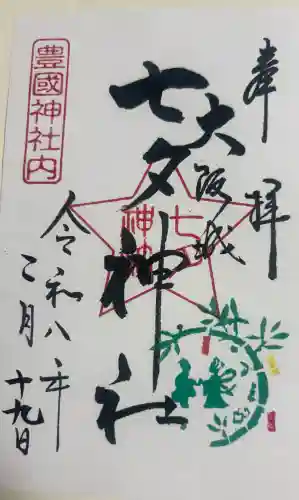 奉拝
大阪城
七夕神社
七夕神社
豊國神社内
令和八年
二月
十九日